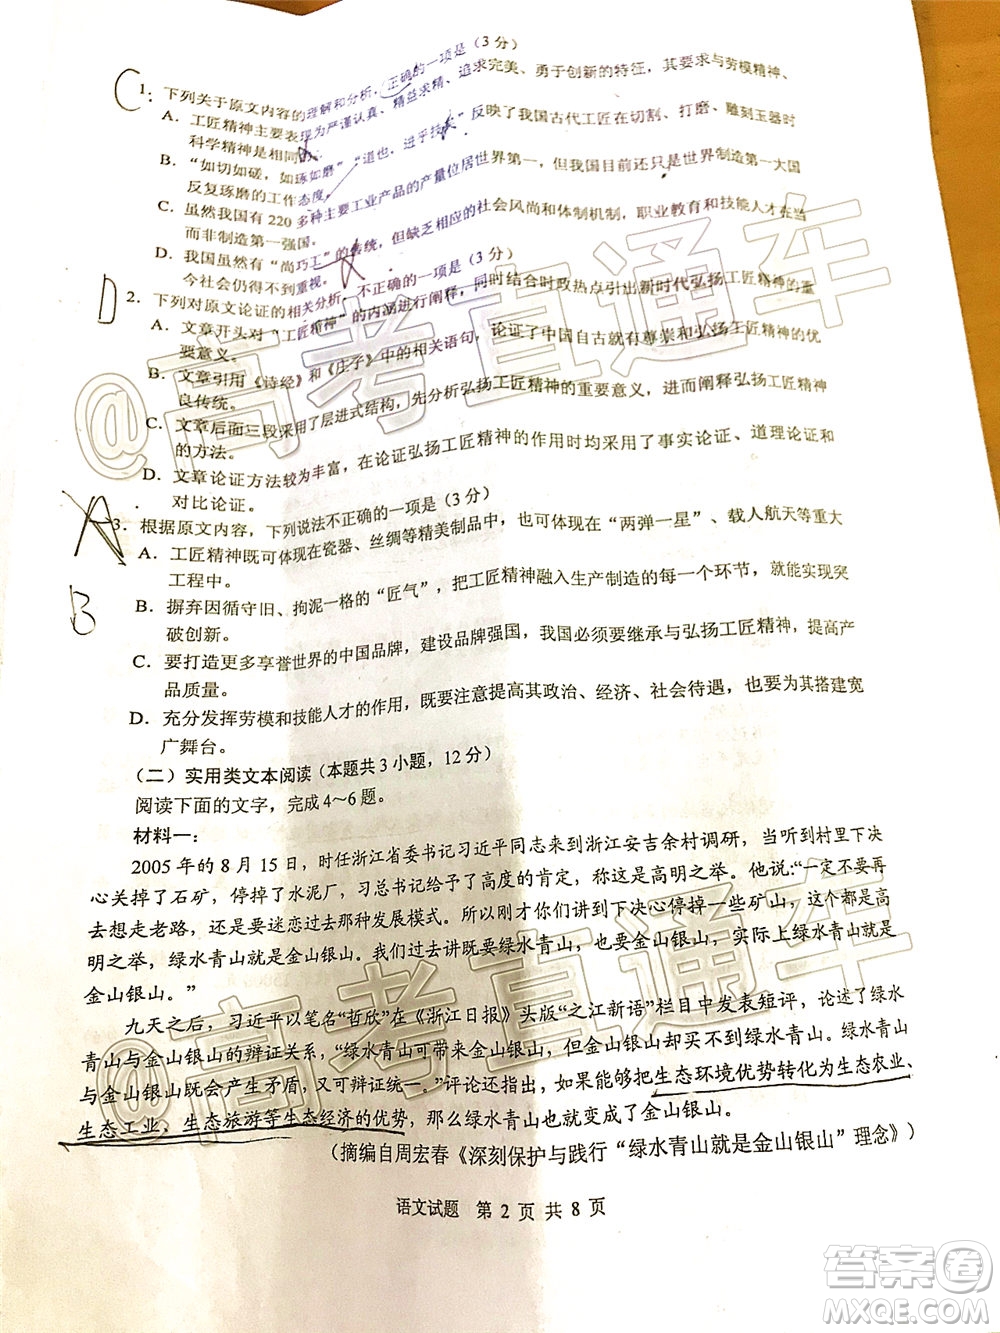 1. 下列关于原文内容的理解和分析，正确的一项是（3分）
A. 工匠精神主要表现为严谨认真、精益求精、追求完美、勇于创新的特征，其要求与劳模精神、
科学精神是相同的。
B. “如切如磋，如琢如磨”“道也，进乎技矣”反映了我国古代工匠在切割、打磨、雕刻玉器时
反复琢磨的工作态度。
C. 虽然我国有220多种主要工业产品的产量位居世界第一，但我国目前还只是世界制造第一大国
而非制造第一强国。
D. 我国虽然有“尚巧工”的传统，但缺乏相应的社会风尚和体制机制，职业教育和技能人才在当
今社会仍得不到重视。
2. 下列对原文论证的相关分析，不正确的一项是（3分）
A. 文章开头对“工匠精神”的内涵进行阐释，同时结合时政热点引出新时代弘扬工匠精神的重
要意义。
B. 文章引用《诗经》和《庄子》中的相关语句，论证了中国自古就有尊崇和弘扬工匠精神的优
良传统。
C. 文章后面三段采用了层进式结构，先分析弘扬工匠精神的重要意义，进而阐释弘扬工匠精神
的方法。
D. 文章论证方法较为丰富，在论证弘扬工匠精神的作用时均采用了事实论证、道理论证和
对比论证。
3. 根据原文内容，下列说法不正确的一项是（3分）
A. 工匠精神既可体现在瓷器、丝绸等精美制品中，也可体现在“两弹一星”、载人航天等重大
工程中。
B. 摒弃因循守旧、拘泥一格的“匠气”，把工匠精神融入生产制造的每一个环节，就能实现突
破创新。
C. 要打造更多享誉世界的中国品牌，建设品牌强国，我国必须要继承与弘扬工匠精神，提高产
品质量。
D. 充分发挥劳模和技能人才的作用，既要注意提高其政治、经济、社会待遇，也要为其搭建宽
广舞台。
（二）实用类文本阅读（本题共3小题，12分）
阅读下面的文字，完成4～6题。
材料一：
2005年的8月15日，时任浙江省委书记习近平同志来到浙江安吉余村调研，当听到村里下决
心关掉了石矿，停掉了水泥厂，习总书记给予了高度的肯定，称这是高明之举。他说：“一定不要再
去想走老路，还是要迷恋过去那种发展模式。所以刚才你们讲到下决心停掉一些矿山，这个都是高
明之举，绿水青山就是金山银山。我们过去讲既要绿水青山，也要金山银山，实际上绿水青山就是
金山银山。”
九天之后，习近平以笔名“哲欣”在《浙江日报》头版“之江新语”栏目中发表短评，论述了绿水
青山与金山银山的辩证关系，“绿水青山可带来金山银山，但金山银山却买不到绿水青山。绿水青山
与金山银山既会产生矛盾，又可辩证统一。”评论还指出，如果能够把这些生态环境优势转化为生态农业、
生态工业、生态旅游等生态经济的优势，那么绿水青山也就变成了金山银山。
（摘编自周宏春《深刻保护与践行“绿水青山就是金山银山”理念》）
语文试题 第2页 共8页
C
D
A
B
@高考直通车
@高考直通车
答案卷
MXQE.COM